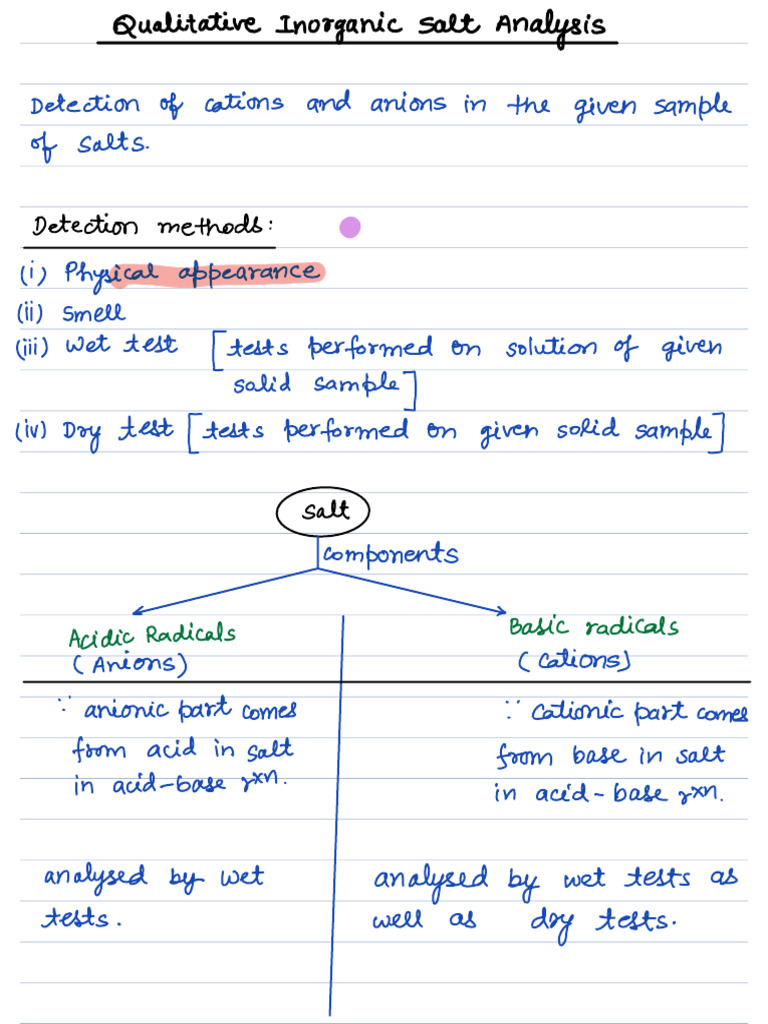 Qualitative Inorganic Salt Analysis
Detection of cations and anions in the given sample
of salts.
Detection methods:
(i) Physical appearance
(ii) Smell
(iii) Wet test [tests performed on solution of given
solid sample]
(iv) Dry test [tests performed on given solid sample]
Salt
components
Acidic Radicals
(Anions)
∵ anionic part comes
from acid in salt
in acid-base rxn.
analysed by wet
tests.
Basic radicals
(Cations)
∵ Cationic part comes
from base in salt
in acid-base rxn.
analysed by wet tests as
well as dry tests.